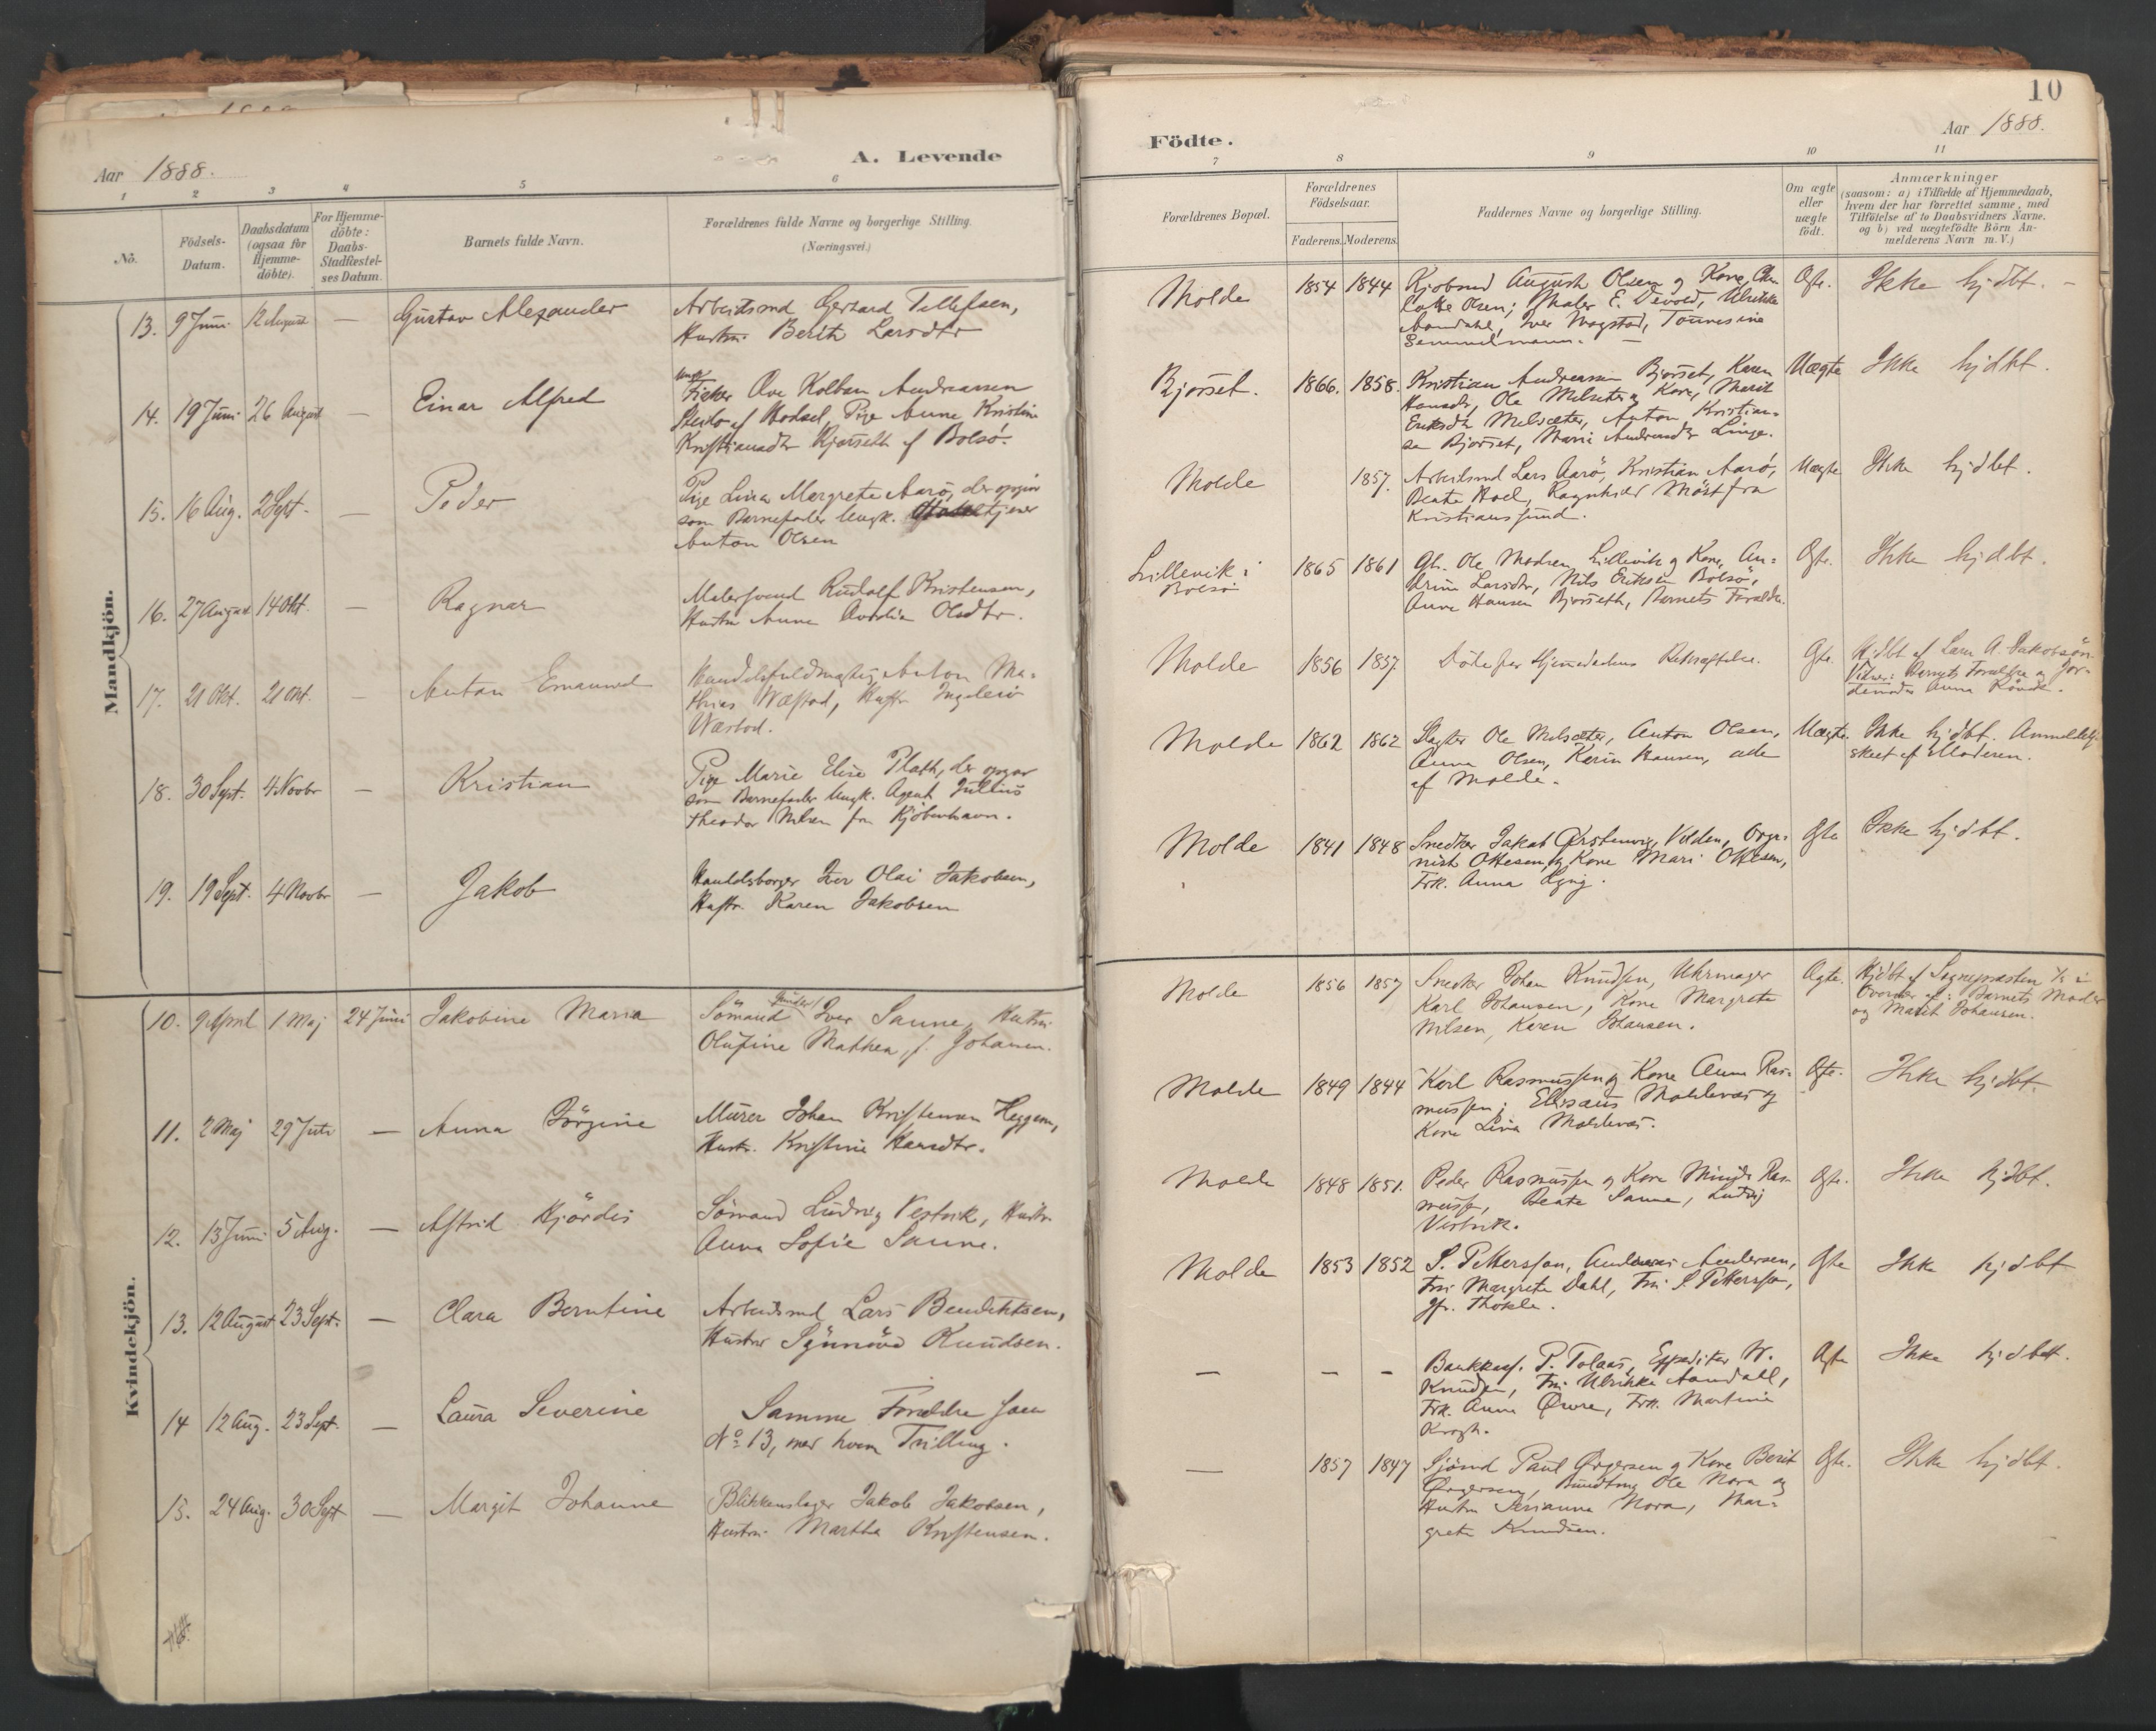 Aar 1888.
A. Levende
1 2 3 4 5 6
No.
Födsels-
Datum.
Daabsdatum
(ogsaa for
Hjemme-
döbte).
For Hjemme-
döbte:
Daabs-
Stadfæstel-
ses Datum.
Barnets fulde Navn.
Forældrenes fulde Navne og borgerlige Stilling.
(Næringsvei.)
Mandkjön.
13. 9 Juni 12 August — Gustav Alexander
Arbeidsmd Gerhard Tellefsen,
Hustru Berith Larsdtr
14. 19 Juni 26 August — Einar Alfred
Ungk.
Fisker Ove Kolban Andreassen
af Hadsel, Pige Anne Kristine
Kristiansdtr Bjørseth af Bolsø.
15. 16 Aug. 2 Sept. — Peder
Pige Lina Margrete Aarö, der opgiv
som Barnefader Ungk. tjener
Anton Olsen
16. 27 August 14 Okt. — Ragnar
Malersvend Rudolf Kristensen,
Hustru Anna Olsdtr.
17. 21 Okt. 21 Okt. — Anton Emanuel
Handelsfuldmægtig Anton Ma-
thias Wæstad, Hustr. Ingeleiv
Wæstad.
18. 30 Sept. 4 Novbr — Kristian
Pige Marie Elise Plath, der opgav
som Barnefader Ungk. Agent Julius
Theodor Nilsen fra Kjøbenhavn.
19. 19 Sept. 4 Novbr — Jakob
Handelsborger Iver Olai Jakobsen,
Hustr. Karen Jakobsen
Kvindekjön.
10. 9 April 1 Maj 24 Juni Jakobine Maria
Sömand Iver Sanne, Hustru
Olufine Mathea, f. Johansen.
11. 2 Maj 29 Juli — Anna Jörgine
Murer Johan Kristensen Heggem,
Hustr. Kristine Hansdtr.
12. 13 Juni 5 Aug. — Astrid Hjördis
Sömand Ludvig Vestvik, Hustr.
Anna Sofie Sanne.
13. 12 August 23 Sept. — Clara Berntine
Arbeidsmd Lars Bendiktsen,
Hustru Synnöve Knudsen.
14 12 Aug. 23 Sept. — Laura Severine
Samme Forældre som
No 13, med hvem Tvilling.
15. 24 Aug. 30 Sept — Margit Johanne
Blikkenslager Jakob Jakobsen,
Hustru Martha Kristensen.
10
Födte.
Aar 1888.
7 8 9 10 11
Forældrenes Bopæl.
Forældrenes
Födselsaar.
Faderens. Moderens.
Faddernes Navne og borgerlige Stilling.
Om ægte
eller
uægte
födt.
Anmærkninger
(saasom: a) i Tilfælde af Hjemmedaab,
hvem der har forrettet samme, med
Tilföielse af to Daabsvidners Navne.
og b) ved uægtefödte Börn An-
melderens Navn m. V.)
Molde 1854 1844
August Olsen og Kone, Char
lotte Olsen; Maler E. Devold, Ulrikke
Aandahl, Iver Magstad, Tønnesine
Semmelmann. —
Ægte. Ikke hjdbt. —
Bjørset. 1866. 1858.
Kristian Andreassen Bjørset, Karen
Hansdtr, Ole Melsæter og Kone, Marit
Eriksdtr Melsæter, Anton Kristian-
sen Bjørset, Marie Andreasdtr Linge.
Uægte Ikke hjdbt.
Molde 1857.
Arbeidsmd Lars Aarö, Kristian Aarö,
Beate Hoel, Ragnhild Möst fra
Kristianssund.
Uægte Ikke hjdbt.
Lillevik i
Bolsø
1865 1861
Gb. Ole Madsen Lillevik og Kone, An-
drine Larsdtr, Nils Eriksen Bolsø,
Anne Hansen Bjørseth, Barnets Forældre.
Ægte. Ikke hjdbt.
Molde 1856 1857.
Døde før Hjemmedaabens Bekræftelse.
Ægte. Hjdbt af Lars A. Jakobsön.
Vidner: Barnets Forældre og Jor-
demoder Anna Rönde.
Molde 1862 1862
Slagter Ole Melsæter, Anton Olsen,
Anna Olsen, Karin Hansen, alle
af Molde.
Uægte. Ikke hjdbt. Anmeldelse
skeet af Moderen.
Molde 1841 1848
Snedker Jakob Ørstenvig, Volden, Orga-
nist Ottesen og Kone Mari Ottesen,
Frk. Anna Lyng.
Ægte Ikke hjdbt.
Molde 1856 1857
Snedker Johan Knudsen, Uhrmager
Karl Johansen, Kone Margrete
Nilsen, Karen Johansen.
Ægte. Hjdbt af Sognepræsten 1/5 i
Overvær af: Barnets Moder
og Marit Johansen.
Molde 1849 1844
Karl Rasmussen og Kone Anne Ras-
mussen; Elisæus Moldevær og
Kone Lina Moldevær.
Ægte. Ikke hjdbt.
Molde 1848 1851.
Peder Rasmussen og Kone Ras-
mussen, Beate Sanne, Ludvig
Vestvik.
Ægte. Ikke hjdbt.
Molde 1853 1852
S. Pettersson, Andreas Andersen,
Fru Margrete Dahl, Fru S. Pettersson,
Jfr. Thokle.
Ægte Ikke hjdbt
— — —
Bankkass. P. Tolaas, Expeditør W.
Knudsen, Fru Ulrikke Aandahl,
Frk. Anna Øwre, Frk. Martine
Krogh.
Ægte Ikke hjdbt.
— 1857 1847
Sjömd Paul Ørgersen og Kone Berit
Ørgersen, Ole Nora og
Hustru Serianna Nora, Mar-
grete Knudsen.
Ægte. Ikke hjdbt.